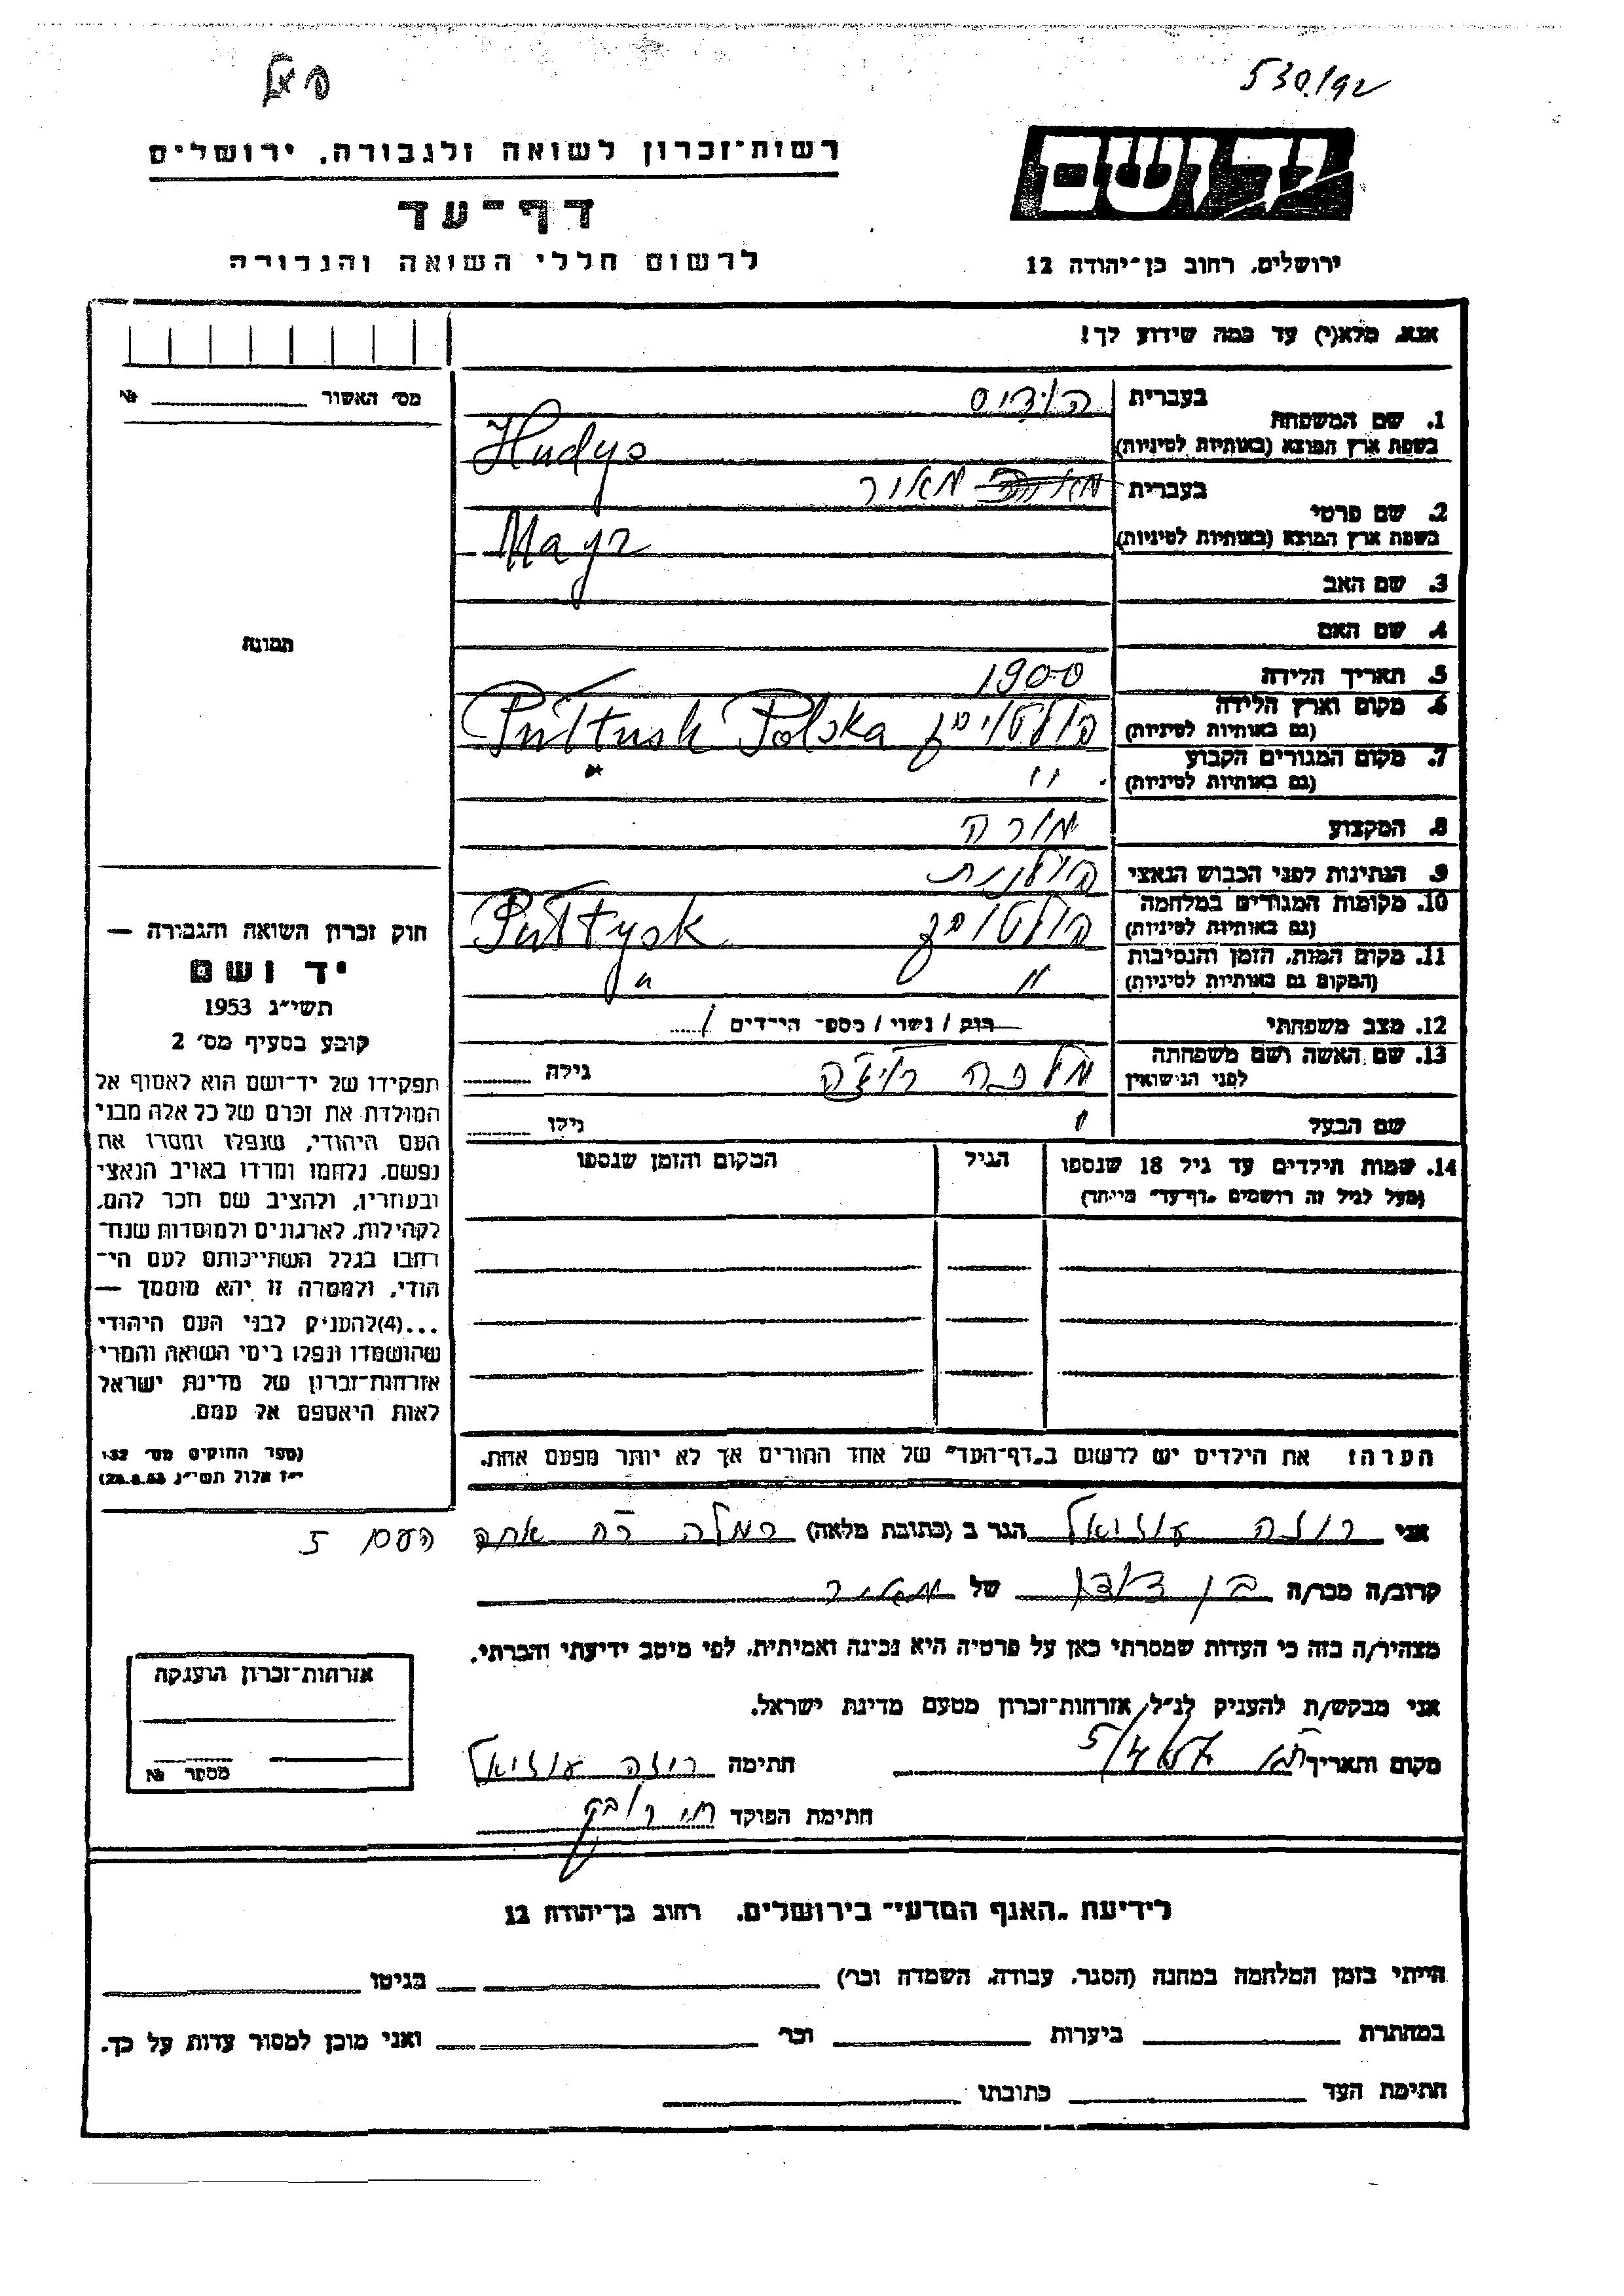 530/92
רשות־זכרון לשואה ולגבורה, ירושלים
יד ושם
דף־עד
לרשום חללי השואה והגבורה
ירושלים, רחוב בן־יהודה 12
אנא, מלא(י) עד כמה שידוע לך!
מס׳ האשור № 
1. שם המשפחה
בעברית הודיס
בשפת ארץ המוצא (באותיות לטיניות) Hudys
2. שם פרטי
בעברית מאיר
בשפת ארץ המוצא (באותיות לטיניות) Mayr
3. שם האב
4. שם האם
תמונה
5. תאריך הלידה 1900
6. מקום וארץ הלידה (גם באותיות לטיניות) פולטוסק Pułtusk Polska
7. מקום המגורים הקבוע (גם באותיות לטיניות) " "
8. המקצוע מורה
9. הנתינות לפני הכבוש הנאצי פולנית
10. מקומות המגורים במלחמה (גם באותיות לטיניות) פולטוסק Pułtysk
11. מקום המות, הזמן והנסיבות (המקום גם באותיות לטיניות) " "
12. מצב משפחתי רוק / נשוי / מספר הילדים /
13. שם האשה ושם משפחתה לפני הנישואין מלכה רוזה גילה
שם הבעל גילו
14. שמות הילדים עד גיל 18 שנספו
(מעל לגיל זה רושמים „דף־עד״ מיוחד)
הגיל
המקום והזמן שנספו
הערה: את הילדים יש לרשום ב„דף־העד״ של אחד ההורים אך לא יותר מפעם אחת.
חוק זכרון השואה והגבורה —
יד ושם
תשי״ג 1953
קובע בסעיף מס׳ 2
תפקידו של יד־ושם הוא לאסוף אל
המולדת את זכרם של כל אלה מבני
העם היהודי, שנפלו ומסרו את
נפשם, נלחמו ומרדו באויב הנאצי
ובעוזריו, ולהציב שם וזכר להם,
לקהילות, לארגונים ולמוסדות שנח־
רבו בגלל השתייכותם לעם הי־
הודי, ולמטרה זו יהא מוסמך —
...(4)להעניק לבני העם היהודי
שהושמדו ונפלו בימי השואה והמרי
אזרחות־זכרון של מדינת ישראל
לאות היאספם אל עמם.
(ספר החוקים מס׳ 132
י״ז אלול תשי״ג 28.8.53)
אני רוזה עוזיאל הגר ב (כתובת מלאה) רמלה רח אחה העם 5
קרוב/ה מכר/ה בן דודן של מאיר
מצהיר/ה בזה כי העדות שמסרתי כאן על פרטיה היא נכונה ואמיתית, לפי מיטב ידיעתי והכרתי.
אני מבקש/ת להעניק לנ״ל, אזרחות־זכרון מטעם מדינת ישראל.
מקום ותאריך 5/4 חתימה רוזה עוזיאל
חתימת הפוקד
אזרחות־זכרון הוענקה
מספר №
לידיעת „האגף המדעי״ בירושלים, רחוב בן־יהודה 12
הייתי בזמן המלחמה במחנה (הסגר, עבודה, השמדה וכו׳) בגיטו
במחתרת ביערות וכו׳ ואני מוכן למסור עדות על כך.
חתימת העד כתובתו